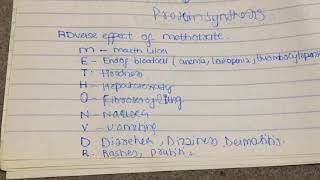 Protein synthesis
Adverse effect of methotrxte.
M - mouth ulcer
E - End of bloodcell (anemia, leukopenia, thrombocytopenia
T - Tiredness
H - Hepatotoxicity
O - Fibrosis of lung
N - Nausea
V - vomiting
D Diarrhea, Dizziness, Dermatitis.
R. Rashes, pruritis.